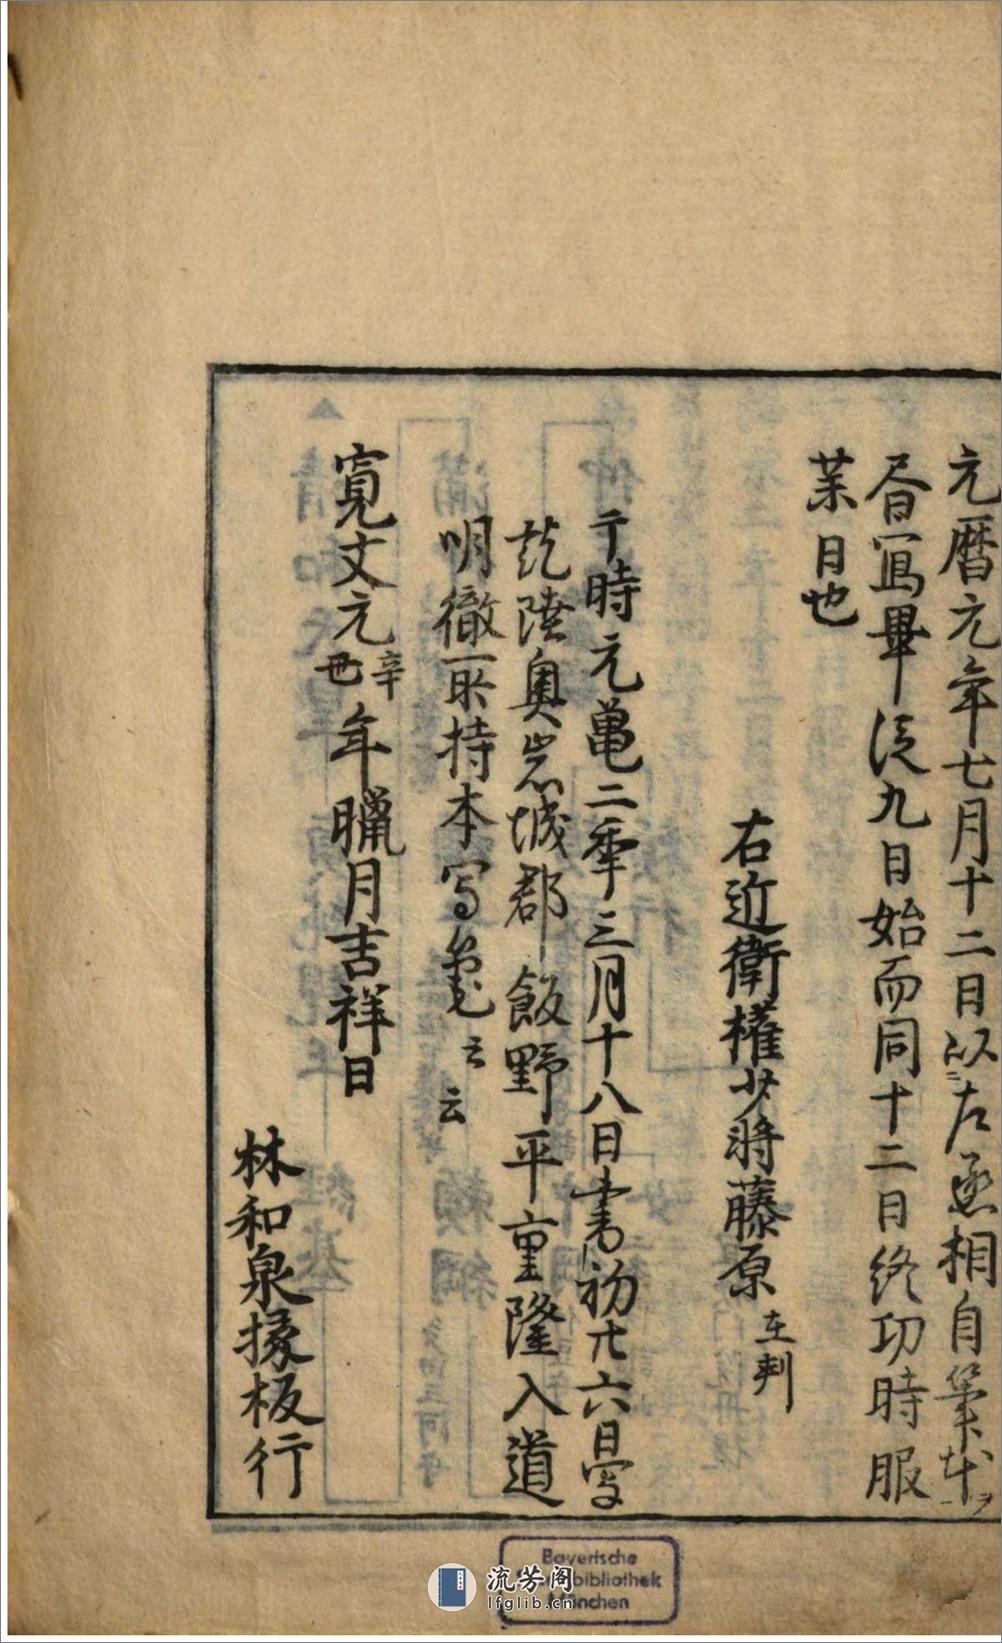 元暦元年七月十二日以左丞相自筆本ヲ
昏冩畢従九日始而同十二日終切時服
菜日也
右近衛権少将藤原 在判
于時元亀二季三月十八日書初廿六日
訖陸奥岩城郡飯野平重隆入道
明徹所持本写 云云
寛文元辛丑年臘月吉祥日
林和泉掾板行
Bayerische
Staatsbibliothek
München
流芳阁
lfglib.cn